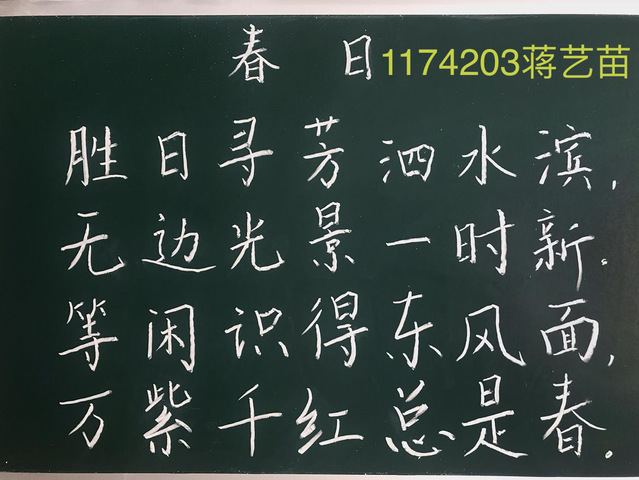 春日1174203蒋艺苗
胜日寻芳泗水滨,
无边光景一时新.
等闲识得东风面,
万紫千红总是春。